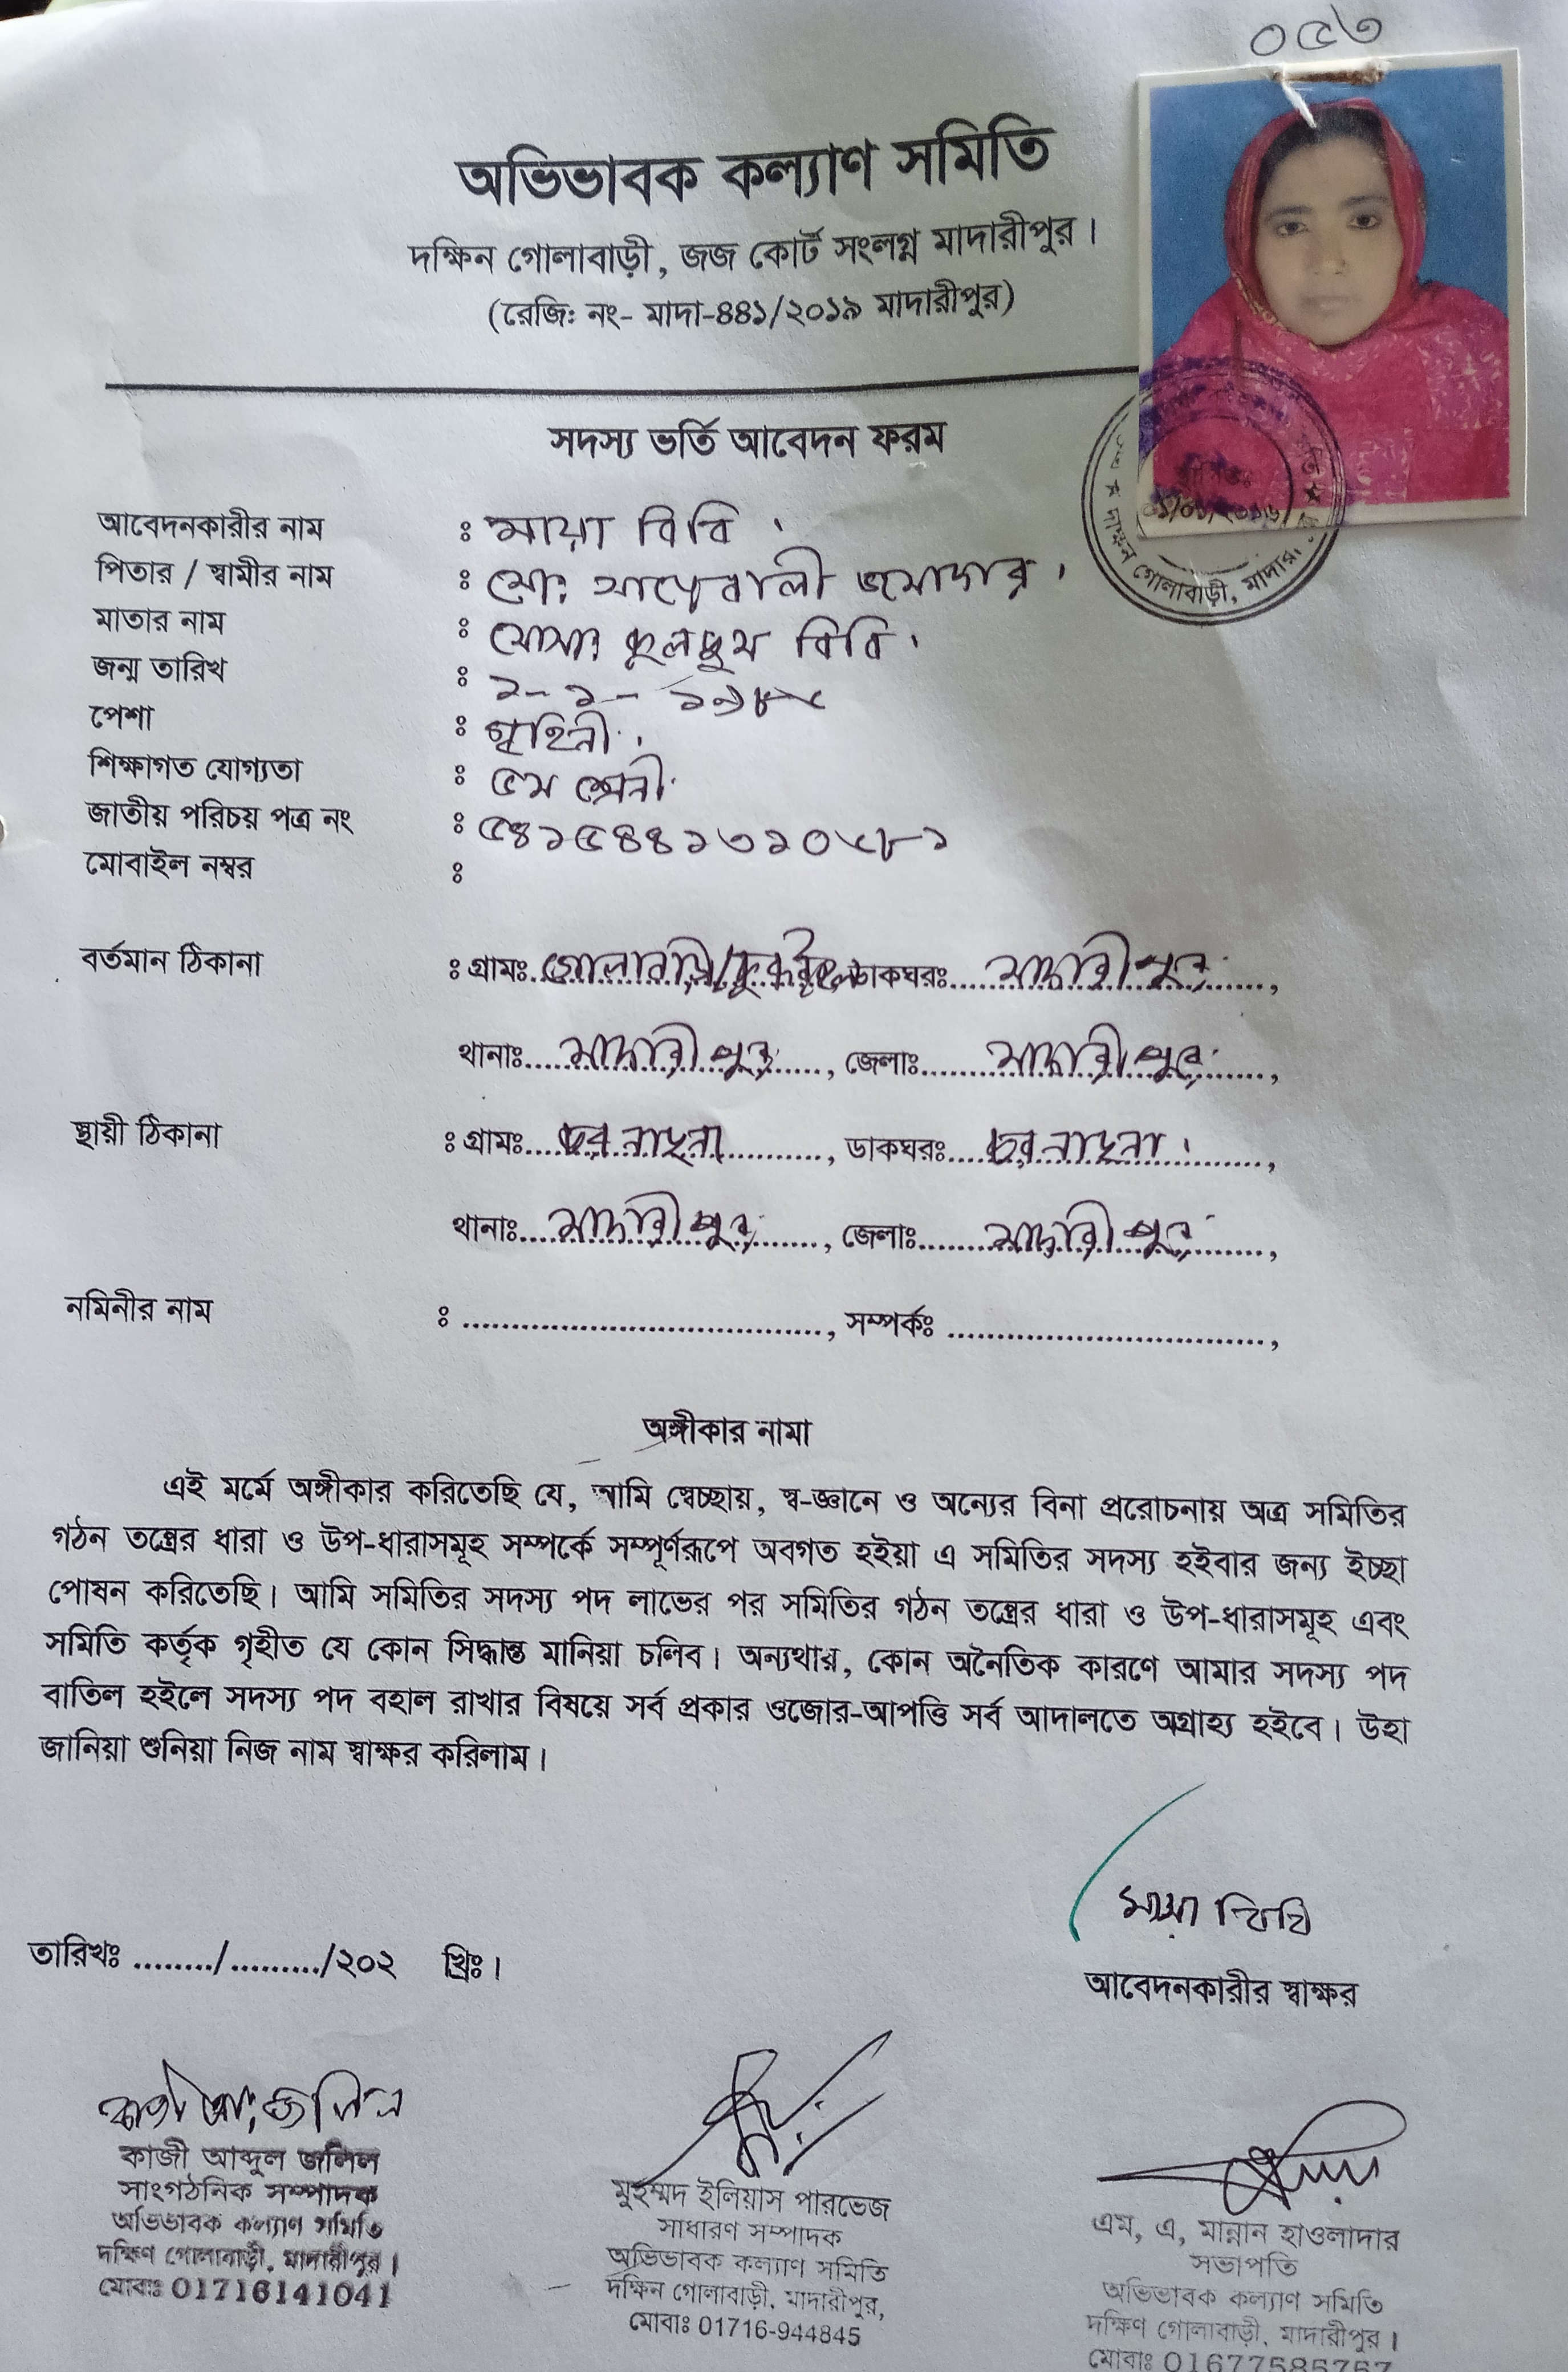 ০৫৩
অভিভাবক কল্যাণ সমিতি
দক্ষিন গোলাবাড়ী, জজ কোর্ট সংলগ্ন মাদারীপুর।
(রেজিঃ নং- মাদা-৪৪১/২০১৯ মাদারীপুর)
সদস্য ভর্তি আবেদন ফরম
আবেদনকারীর নাম : মায়া বিবি
পিতার / স্বামীর নাম : মোঃ
মাতার নাম : মোসাঃ কুলছুম বিবি
জন্ম তারিখ : ১-১-১৯৮৫
পেশা : গৃহিনী
শিক্ষাগত যোগ্যতা : ৫ম শ্রেনী
জাতীয় পরিচয় পত্র নং : ৫৪১৫৪৪১৩১০৫৮১
মোবাইল নম্বর :
বর্তমান ঠিকানা : গ্রামঃ গোলাবাড়ী ডাকঘরঃ মাদারীপুর,
থানাঃ মাদারীপুর, জেলাঃ মাদারীপুর,
স্থায়ী ঠিকানা : গ্রামঃ চর নাছনা, ডাকঘরঃ চর নাছনা,
থানাঃ মাদারীপুর, জেলাঃ মাদারীপুর,
নমিনীর নাম : ...................................., সম্পর্কঃ ....................................,
অঙ্গীকার নামা
এই মর্মে অঙ্গীকার করিতেছি যে, আমি স্বেচ্ছায়, স্ব-জ্ঞানে ও অন্যের বিনা প্ররোচনায় অত্র সমিতির
গঠন তন্ত্রের ধারা ও উপ-ধারাসমূহ সম্পর্কে সম্পূর্ণরূপে অবগত হইয়া এ সমিতির সদস্য হইবার জন্য ইচ্ছা
পোষন করিতেছি। আমি সমিতির সদস্য পদ লাভের পর সমিতির গঠন তন্ত্রের ধারা ও উপ-ধারাসমূহ এবং
সমিতি কর্তৃক গৃহীত যে কোন সিদ্ধান্ত মানিয়া চলিব। অন্যথায়, কোন অনৈতিক কারণে আমার সদস্য পদ
বাতিল হইলে সদস্য পদ বহাল রাখার বিষয়ে সর্ব প্রকার ওজোর-আপত্তি সর্ব আদালতে অগ্রাহ্য হইবে। উহা
জানিয়া শুনিয়া নিজ নাম স্বাক্ষর করিলাম।
মায়া বিবি
তারিখঃ ......../........./২০২ খ্রিঃ।
আবেদনকারীর স্বাক্ষর
কাজী আঃ জলিল
কাজী আব্দুল জলিল
সাংগঠনিক সম্পাদক
অভিভাবক কল্যাণ সমিতি
দক্ষিণ গোলাবাড়ী, মাদারীপুর।
মোবাঃ 01716141041
মুহম্মদ ইলিয়াস পারভেজ
সাধারণ সম্পাদক
অভিভাবক কল্যাণ সমিতি
দক্ষিন গোলাবাড়ী, মাদারীপুর,
মোবাঃ 01716-944845
এম, এ, মান্নান হাওলাদার
সভাপতি
অভিভাবক কল্যাণ সমিতি
দক্ষিণ গোলাবাড়ী, মাদারীপুর।
মোবাঃ 01677585757